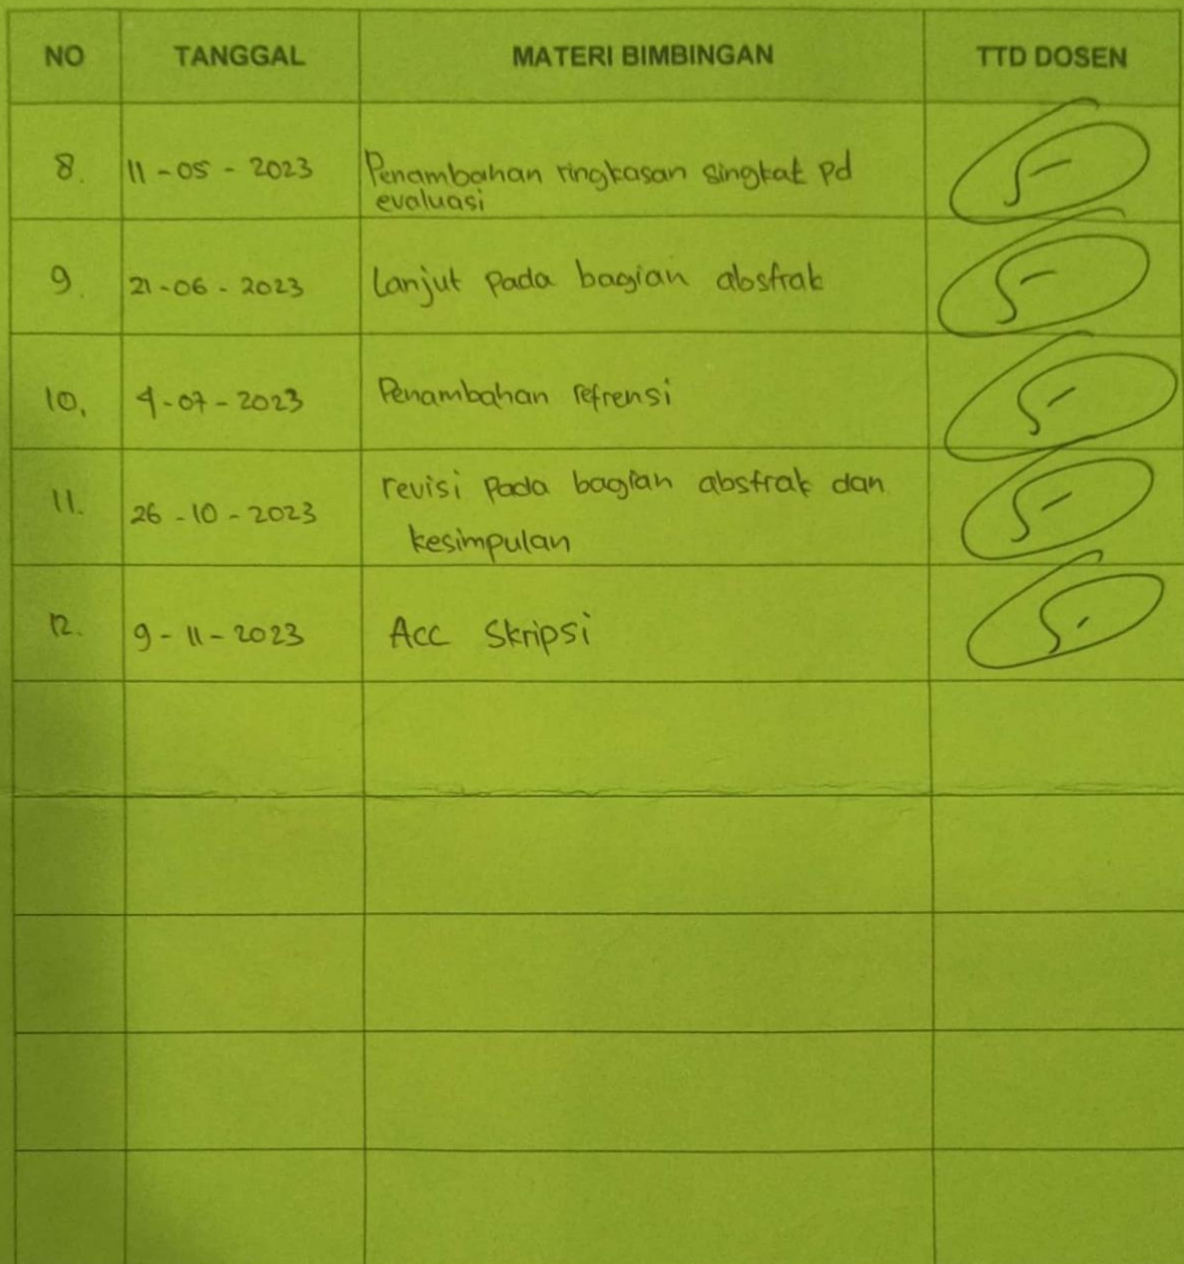 NO TANGGAL MATERI BIMBINGAN TTD DOSEN
8. 11-05-2023 Penambahan ringkasan singkat pd
evaluasi
9. 21-06-2023 Lanjut pada bagian abstrak
10. 4-07-2023 Penambahan refrensi
11. 26-10-2023 revisi pada bagian abstrak dan
kesimpulan
12. 9-11-2023 Acc Skripsi